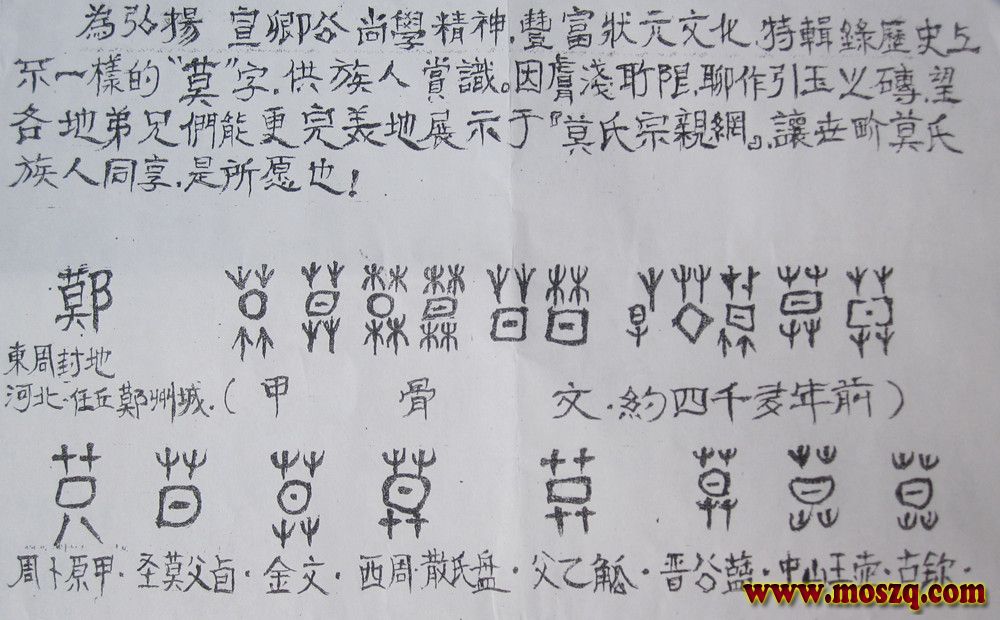 為弘揚 宣卿公尚學精神,豐富狀元文化,特輯錄歷史上
不一樣的“莫”字,供族人賞識。因膚淺所限,聊作引玉之磚,望
各地弟兄們能更完美地展示于『莫氏宗親網』,讓世界莫氏
族人同享,是所愿也!
鄚
東周封地
河北·任丘鄚州城.(甲骨文·約四千多年前)
周卜原甲·圣莫父卣·金文·西周·散氏盤·父乙觚·晋公·中山王·古
www.moszq.com